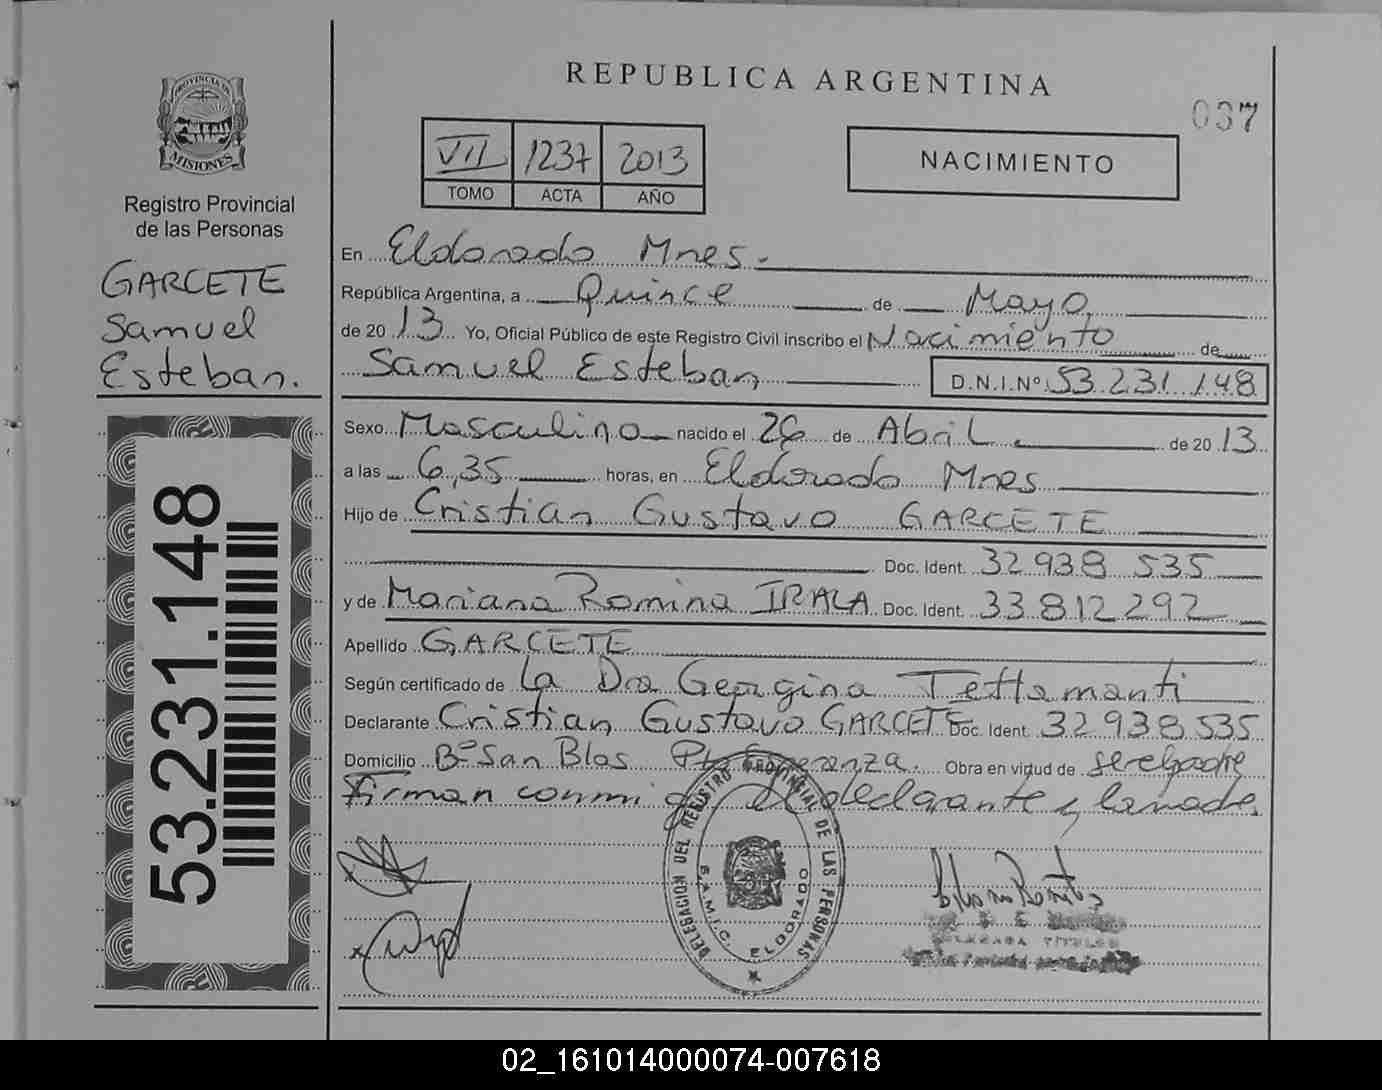 REPUBLICA ARGENTINA
037
PROVINCIA DE MISIONES
Registro Provincial
de las Personas
GARCETE
Samuel
Esteban.
53.231.148
VII 1237 2013
TOMO ACTA AÑO
NACIMIENTO
En Eldorado Mnes.
República Argentina, a Quince de Mayo
de 2013 Yo, Oficial Público de este Registro Civil inscribo el Nacimiento de
Samuel Esteban D.N.I.Nº 53.231.148
Sexo Masculino nacido el 26 de Abril de 2013
a las 6,35 horas, en Eldorado Mnes
Hijo de Cristian Gustavo GARCETE
Doc. Ident. 32.938.535
y de Mariana Romina IRALA Doc. Ident. 33.812.292
Apellido GARCETE
Según certificado de La Dra Georgina Tettamanti
Declarante Cristian Gustavo GARCETE Doc. Ident. 32.938.535
Domicilio Bº San Blas Pto Esperanza. Obra en virtud de ser el padre
Firman conmigo el declarante y la madre.
DELEGACION DEL REGISTRO PROVINCIAL DE LAS PERSONAS
S.A.M.I.C. ELDORADO
02_161014000074-007618